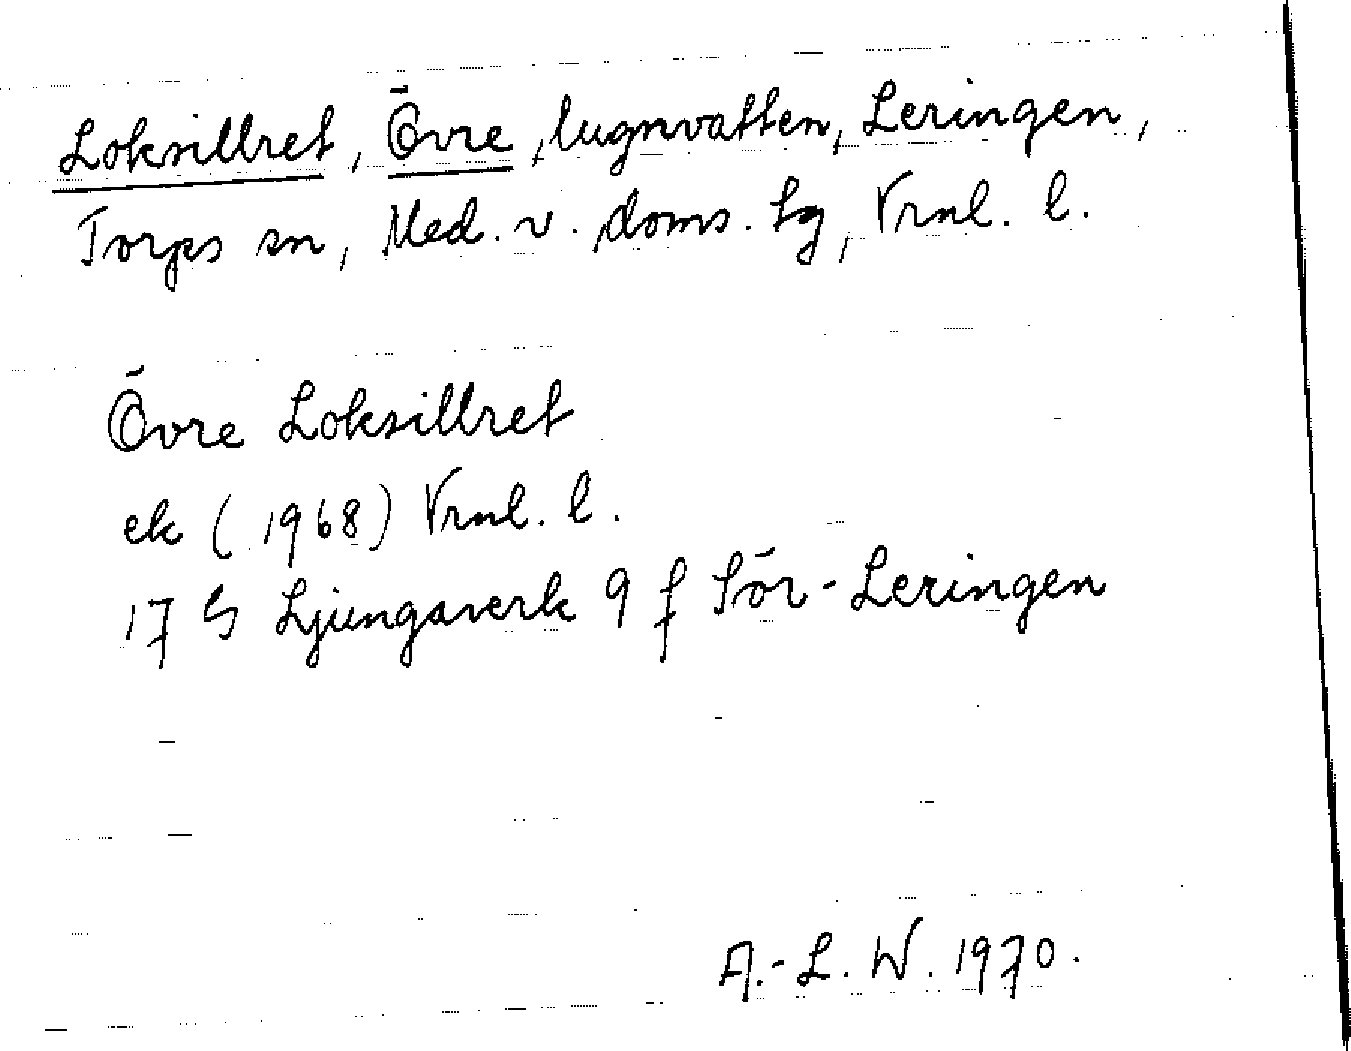 Loksillret, Övre, lugnvatten, Leringen,
Torps sn, Med. v. doms. tg, Vrnl. l.
Övre Loksillret
ek (1968) Vrnl. l.
17 G Ljungaverk 9 f Sör-Leringen
A.-L. W. 1970.